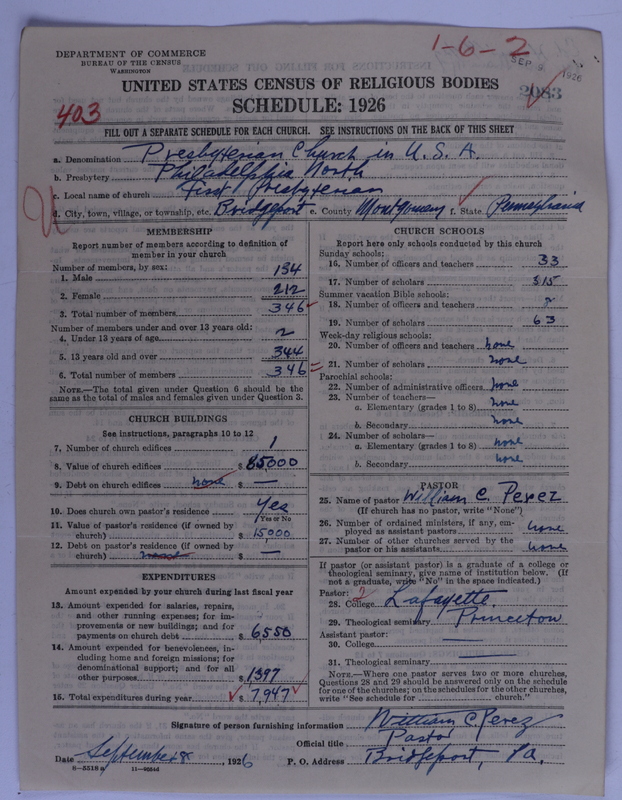 DEPARTMENT OF COMMERCE
BUREAU OF THE CENSUS
WASHINGTON
1-6-2
SEP 9 1926
2083
403
UNITED STATES CENSUS OF RELIGIOUS BODIES
SCHEDULE: 1926
FILL OUT A SEPARATE SCHEDULE FOR EACH CHURCH. SEE INSTRUCTIONS ON THE BACK OF THIS SHEET
a. Denomination Presbyterian Church in U.S.A.
b. Presbytery Philadelphia North
c. Local name of church First Presbyterian
d. City, town, village, or township, etc. Bridgeport e. County Montgomery f. State Pennsylvania
MEMBERSHIP
Report number of members according to definition of
member in your church
Number of members, by sex:
1. Male 134
2. Female 212
3. Total number of members 346
Number of members under and over 13 years old:
4. Under 13 years of age 2
5. 13 years old and over 344
6. Total number of members 346
NOTE.—The total given under Question 6 should be
same as the total of males and females given under Question 3.
CHURCH BUILDINGS
See instructions, paragraphs 10 to 12
7. Number of church edifices 1
8. Value of church edifices $ 85000
9. Debt on church edifices none $ —
10. Does church own pastor's residence Yes
Yes or No
11. Value of pastor's residence (if owned by
church) $ 15000
12. Debt on pastor's residence (if owned by
church) $ —
EXPENDITURES
Amount expended by your church during last fiscal year
13. Amount expended for salaries, repairs,
and other running expenses; for im-
provements or new buildings; and for
payments on church debt $ 6550
14. Amount expended for benevolences, in-
cluding home and foreign missions; for
denominational support; and for all
other purposes $ 1397
15. Total expenditures during year $ 7,947
CHURCH SCHOOLS
Report here only schools conducted by this church
Sunday schools:
16. Number of officers and teachers 33
17. Number of scholars 315
Summer vacation Bible schools:
18. Number of officers and teachers
19. Number of scholars 63
Week-day religious schools:
20. Number of officers and teachers none
21. Number of scholars none
Parochial schools:
22. Number of administrative officers none
23. Number of teachers—
a. Elementary (grades 1 to 8) none
b. Secondary none
24. Number of scholars—
a. Elementary (grades 1 to 8) none
b. Secondary none
PASTOR
25. Name of pastor William C. Perez
(If church has no pastor, write "None")
26. Number of ordained ministers, if any, em-
ployed as assistant pastors none
27. Number of other churches served by the
pastor or his assistants none
If pastor (or assistant pastor) is a graduate of a college or
theological seminary, give name of institution below. (If
not a graduate, write "No" in the space indicated.)
Pastor: 2
28. College Lafayette
29. Theological seminary Princeton
Assistant pastor:
30. College
31. Theological seminary
NOTE.—Where one pastor serves two or more churches,
Questions 28 and 29 should be answered only on the schedule
for one of the churches; on the schedules for the other churches,
write "See schedule for church."
Signature of person furnishing information William C. Perez
Official title Pastor
Date September 8, 1926 P. O. Address Bridgeport, Pa.
8-5518 a 11-9664d